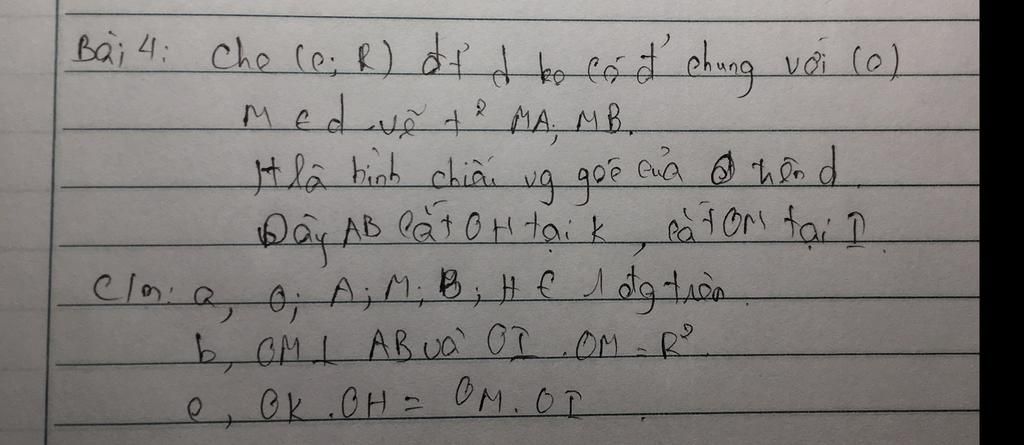 Bài 4: Cho (O; R) đt d ko có đ' chung với (O)
M ∈ d vẽ t² MA; MB.
H là hình chiếu vg góc của O trên d
Dây AB cắt OH tại K, cắt OM tại I
C/m: a, O; A; M; B; H ∈ 1 đg tròn.
b, OM ⊥ AB và OI . OM = R²
c, OK . OH = OM . OI